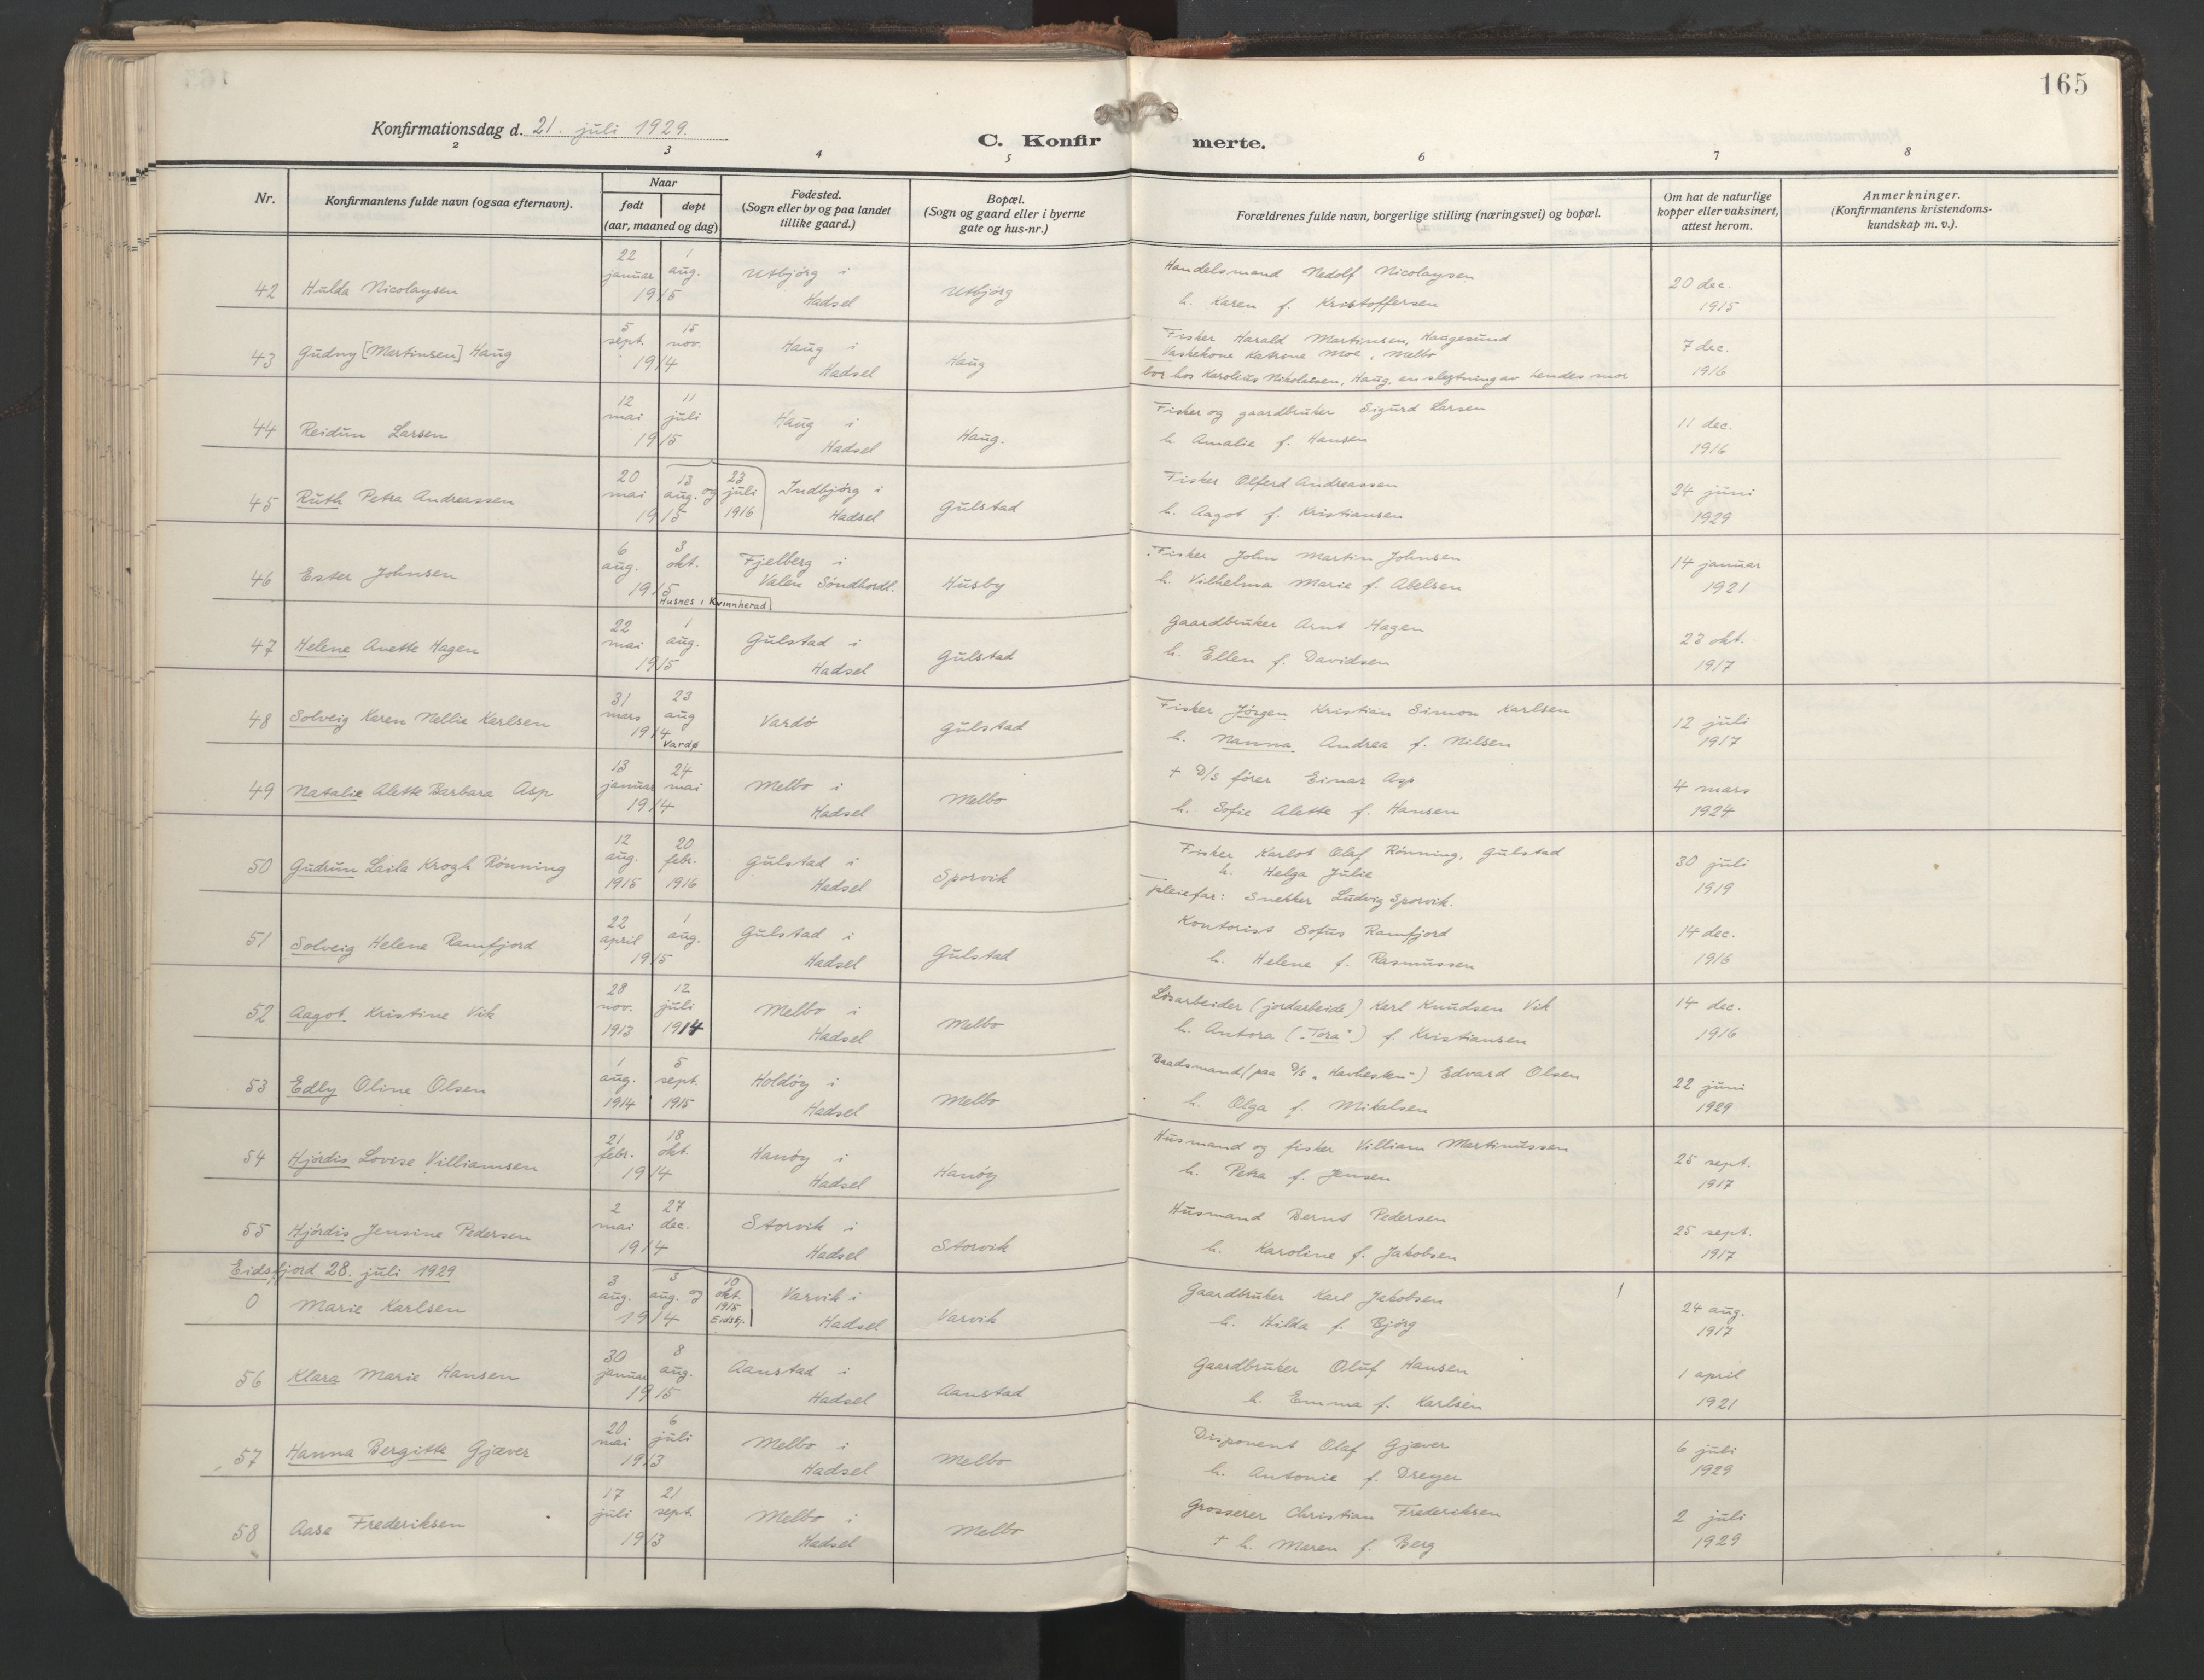 165
Konfirmationsdag d. 21. juli 1929.
C. Konfirmerte.
2 3 4 5 6 7 8
Nr.
Konfirmantens fulde navn (ogsaa efternavn).
Naar
født døpt
(aar, maaned og dag)
Fødested.
(Sogn eller by og paa landet
tillike gaard.)
Bopæl.
(Sogn og gaard eller i byerne
gate og hus-nr.)
Forældrenes fulde navn, borgerlige stilling (næringsvei) og bopæl.
Om hat de naturlige
kopper eller vaksinert,
attest herom.
Anmerkninger.
(Konfirmantens kristendoms-
kundskap m. v.).
22 1
januar aug. Utbjørg i Handelsmand Nedolf Nicolaysen 20 dec.
42 Hulda Nicolaysen 1915 Hadsel Utbjørg h. Karen f. Kristoffersen 1915
5 15 Fisker Harald Martinsen, Haugesund
sept. nov. Haug i Vaskekone Katrine Moe, Melbo 7 dec.
43 Gudny [Martinsen] Haug 1914 Hadsel Haug bor hos Karolius Nikolaisen, Haug, en slegtning av hendes mor 1916
12 11
mai juli Haug i Fisker og gaardbruker Sigurd Larsen 11 dec.
44 Reidun Larsen 1915 Hadsel Haug. h. Amalie f. Hansen 1916
20 13 23
mai aug. og juli Indbjørg i Fisker Olferd Andreassen 24 juni
45 Ruth Petra Andreassen 1915 1916 Hadsel Gulstad h. Aagot f. Kristiansen 1929
6 3
aug. okt. Fjelberg i Fisker John Martin Johnsen 14 januar
46 Ester Johnsen 1915 Valen Søndhordl. Husby h. Vilhelma Marie f. Abelsen 1921
Husnes i Kvinnherad
22 1
mai aug. Gulstad i Gaardbruker Arnt Hagen 22 okt.
47 Helene Anette Hagen 1915 Hadsel Gulstad h. Ellen f. Davidsen 1917
31 23
mars aug Fisker Jørgen Kristian Simon Karlsen 12 juli
48 Solveig Karen Nellie Karlsen 1914 Vardø Gulstad h. Nanna Andrea f. Nilsen 1917
Vardø
13 24
januar mai Melbo i + D/S fører Einar Asp 4 mars
49 Natalie Alette Barbara Asp 1914 Hadsel Melbo h. Sofie Alette f. Hansen 1924
12 20 Fisker Karlot Olaf Rønning, Gulstad
aug. febr. Gulstad i h. Helga Julie 30 juli
50 Gudrun Laila Krogh Rønning 1915 1916 Hadsel Sporvik pleiefar: Snekker Ludvig Sporvik. 1919
22 1
april aug. Gulstad i Kontorist Sofus Ramfjord 14 dec.
51 Solveig Helene Ramfjord 1915 Hadsel Gulstad h. Helene f. Rasmussen 1916
28 12
nov. juli Melbo i Løsarbeider (jordarbeide) Karl Knudsen Vik 14 dec.
52 Aagot Kristine Vik 1913 1914 Hadsel Melbo h. Antora ("Tora") f. Kristiansen 1916
1 5
aug. sept. Holdøy i Baadsmand (paa D/S "Havhesten") Edvard Olsen 22 juni
53 Edly Oline Olsen 1914 1915 Hadsel Melbo h. Olga f. Mikalsen 1929
21 18
febr. okt. Hanøy i Husmand og fisker Villiam Martinussen 25 sept.
54 Hjørdis Lovise Villiamsen 1914 Hadsel Hanøy h. Petra f. Jensen 1917
2 27
mai dec. Storvik i Husmand Bernt Pedersen 25 sept.
55 Hjørdis Jensine Pedersen 1914 Hadsel Storvik h. Karoline f. Jakobsen 1917
Eidsfjord 28. juli 1929
3 3 10
aug. aug. og okt. 1915 Eidsfj. Varvik i Gaardbruker Karl Jakobsen 24 aug.
0 Marie Karlsen 1914 Hadsel Varvik h. Hilda f. Bjørg 1917
30 8
januar aug. Aanstad i Gaardbruker Oluf Hansen 1 april
56 Klara Marie Hansen 1915 Hadsel Aanstad h. Emma f. Karlsen 1921
20 6
mai juli Melbo i Disponent Olaf Gjæver 6 juli
57 Hanna Bergitte Gjæver 1913 Hadsel Melbo h. Antonie f. Dreyer 1929
17 21
juli sept. Melbo i Grosserer Christian Frederiksen 2 juli
58 Aase Frederiksen 1913 Hadsel Melbo + h. Maren f. Berg 1929